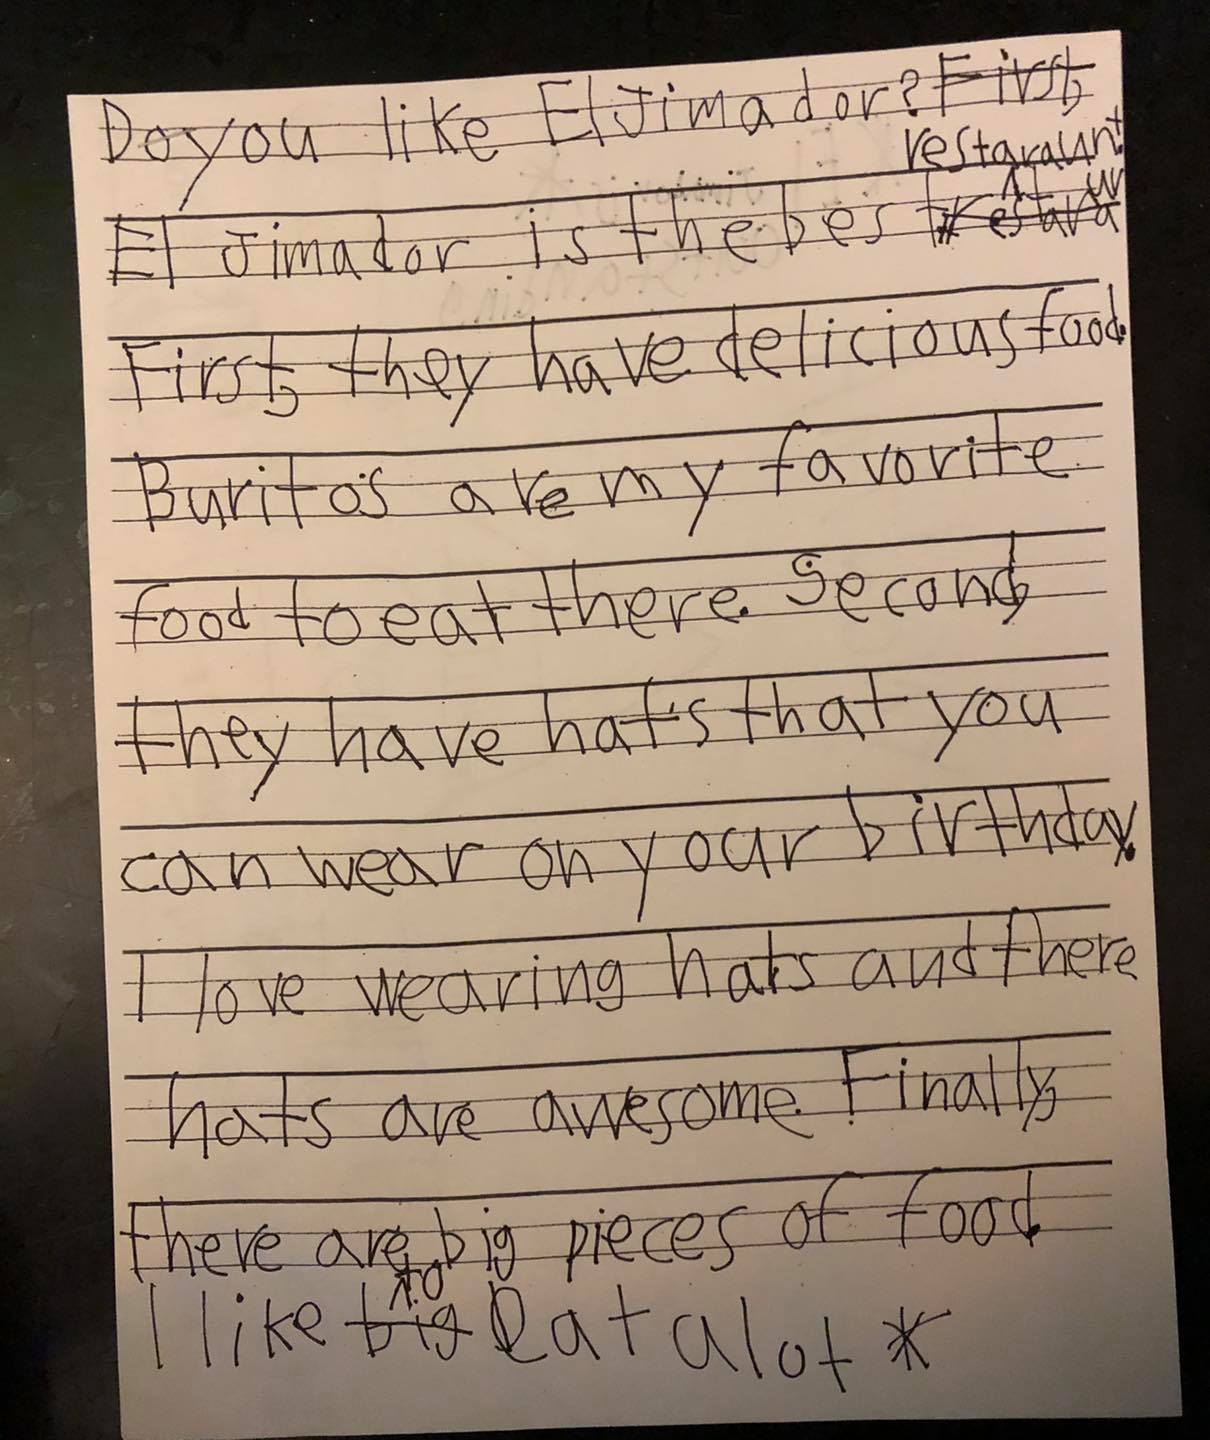 Do you like El Jimador? First,
restaraunt
El Jimador is the best
First, they have delicious food.
Burito's are my favorite
food to eat there. Second,
they have hat's that you
can wear on your birthday.
I love wearing hats and there
hats are awesome. Finally,
there are big pieces of food.
to
I like big Eat alot *